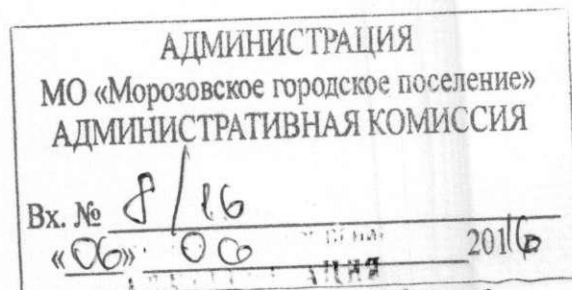 АДМИНИСТРАЦИЯ
МО «Морозовское городское поселение»
АДМИНИСТРАТИВНАЯ КОМИССИЯ
Вх. № 8/16
«06» 06 2016